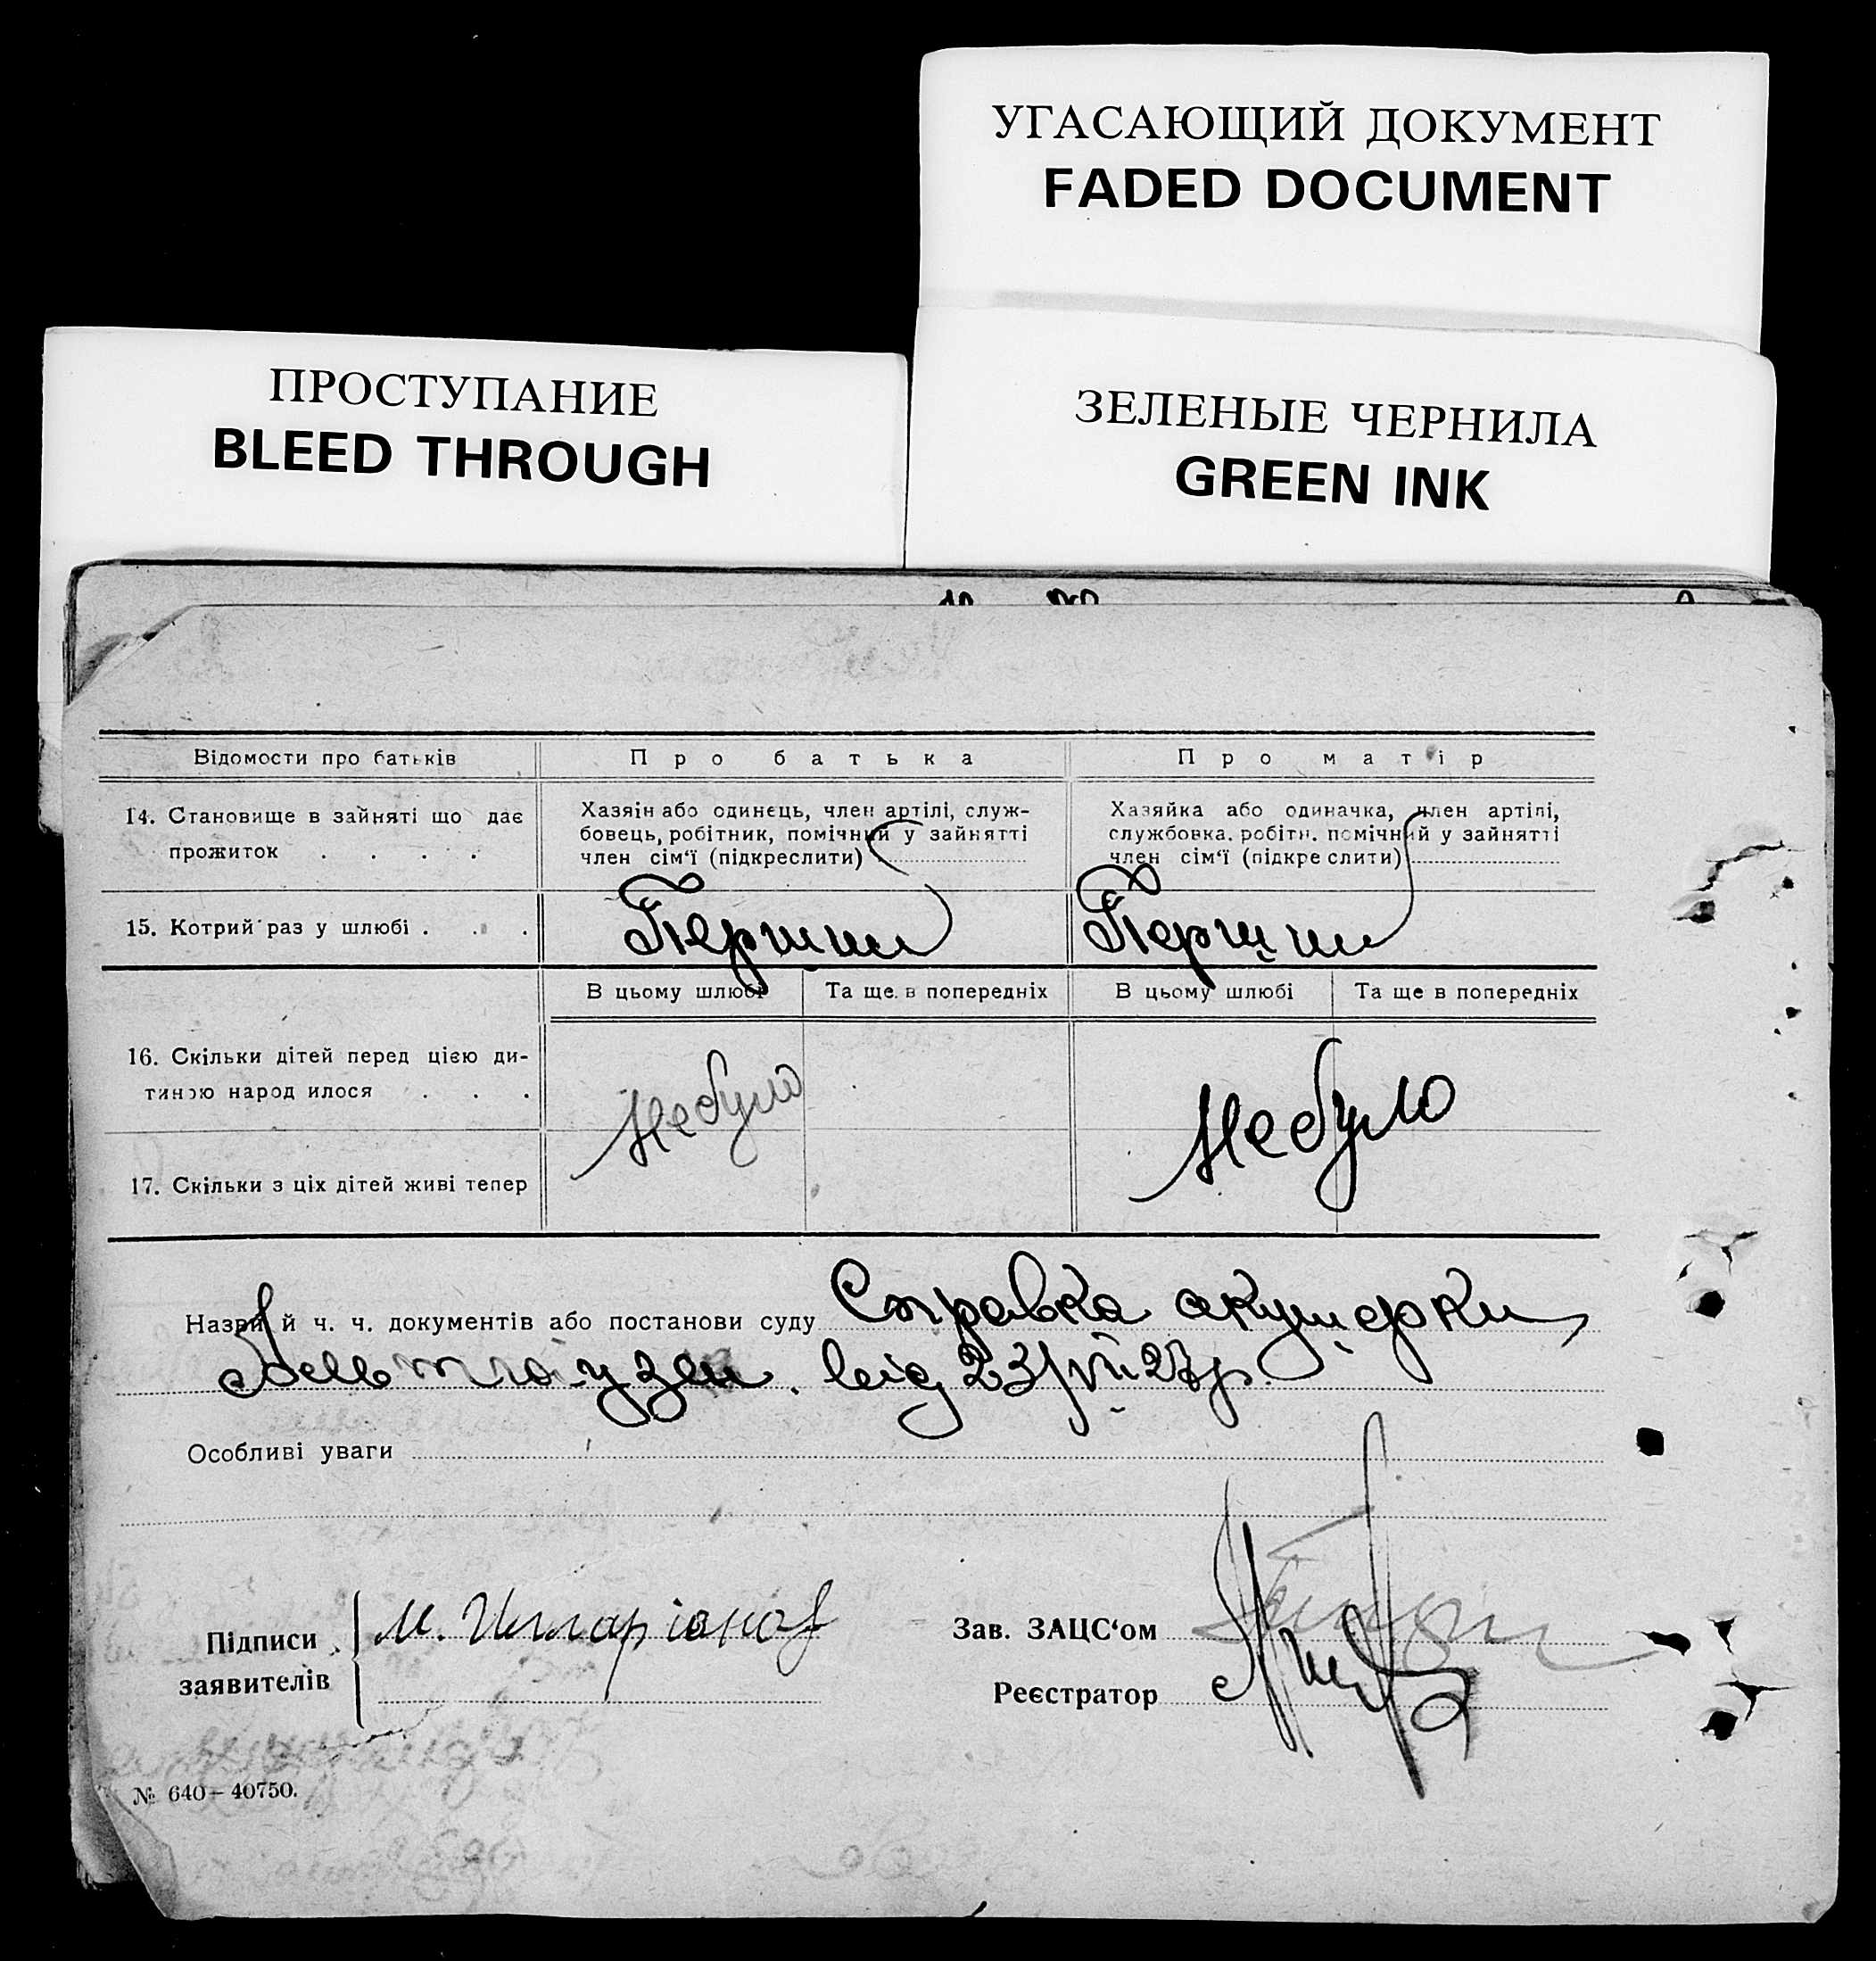 УГАСАЮЩИЙ ДОКУМЕНТ
FADED DOCUMENT
ПРОСТУПАНИЕ
BLEED THROUGH
ЗЕЛЕНЫЕ ЧЕРНИЛА
GREEN INK
Відомости про батьків
Про батька
Про матір
14. Становище в зайняті що дає
прожиток . . . .
Хазяін або одинець, член артілі, служ-
бовець, робітник, помічний у зайнятті
член сім'ї (підкреслити)
Хазяйка або одиначка, член артілі,
службовка. робітн. помічний у зайнятті
член сім'ї (підкреслити)
15. Котрий раз у шлюбі . . .
Перший
Перший
В цьому шлюбі
Та ще в попередніх
В цьому шлюбі
Та ще в попередніх
16. Скільки дітей перед цією ди-
тиною народилося . . .
Не було
Не було
17. Скільки з ціх дітей живі тепер
Назви й ч. ч. документів або постанови суду Справка акушерки
від 23/VII 27р.
Особливі уваги
Підписи
заявителів
М. Илларіонов
Зав. ЗАЦС'ом
Реєстратор
№ 640—40750.